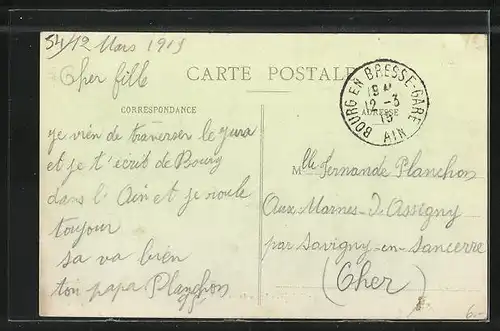 54/12 Mars 1915
Cher fille
CARTE POSTALE
CORRESPONDANCE
ADRESSE
BOURG EN BRESSE-GARE
19
12-3
15
AIN
je vien de traverser le jura
et je t'écrit de Bourg
dans l'Ain et je roule
toujour
sa va bien
ton papa Planchon
Mlle Fernande Planchon
Aux Marnes-d'Assigny
par Savigny-en-Sancerre
(Cher)
6.-